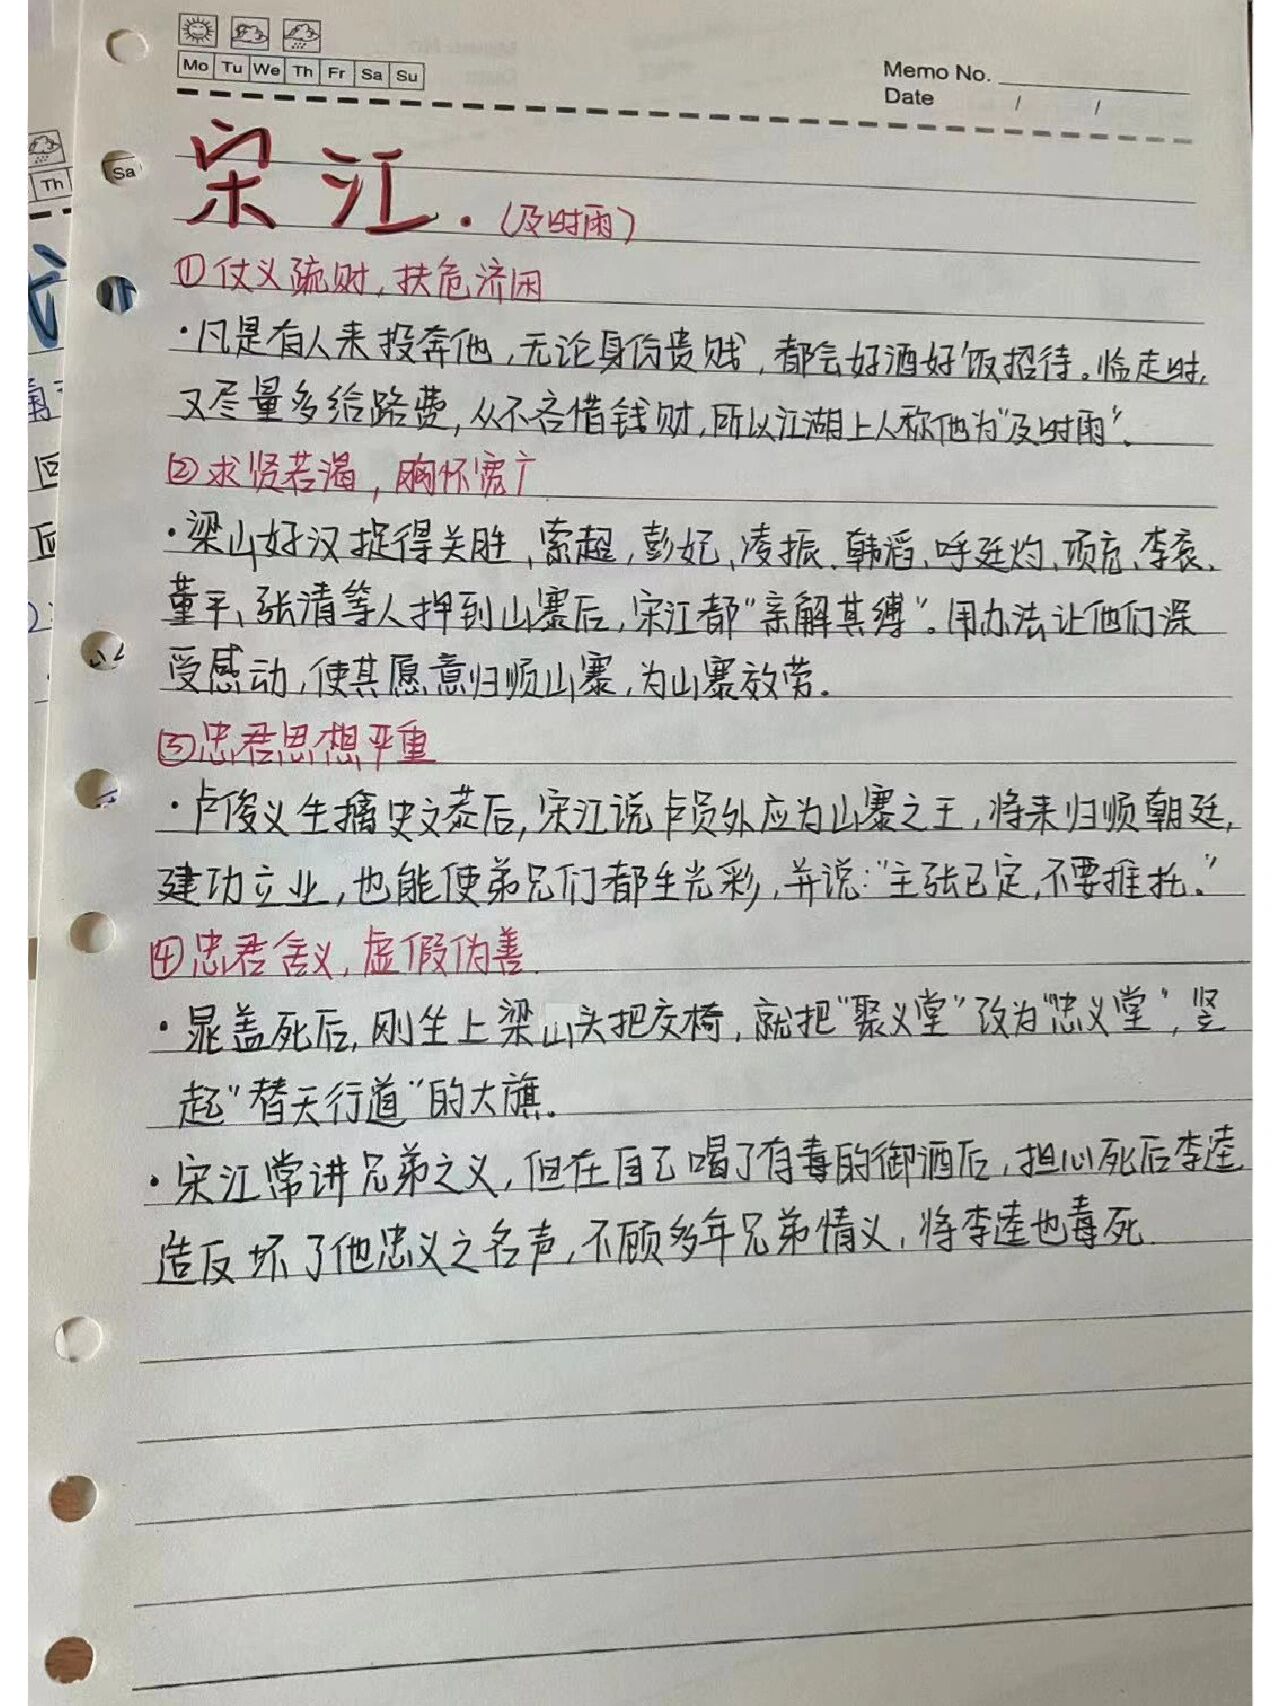 Mo Tu We Th Fr Sa Su
Memo No.
Date / /
Th
Sa
宋江.(及时雨)
①仗义疏财,扶危济困
·凡是有人来投奔他,无论身份贵贱,都会好酒好饭招待。临走时,
又尽量多给路费,从不吝惜钱财,所以江湖上人称他为"及时雨".
②求贤若渴,胸怀宽广
·梁山好汉捉得关胜、索超,彭妃、凌振、韩滔、呼延灼、项充、李衮、
董平、张清等人押到山寨后,宋江都"亲解其缚"。用办法让他们深
受感动,使其愿意归顺山寨,为山寨效劳.
③忠君思想严重
·卢俊义生擒史文恭后,宋江说卢员外应为山寨之王,将来归顺朝廷,
建功立业,也能使弟兄们都生光彩,并说:"主张已定,不要推托."
④忠君舍义,虚假伪善.
·晁盖死后,刚坐上梁山头把交椅,就把"聚义堂"改为"忠义堂",竖
起"替天行道"的大旗.
·宋江常讲兄弟之义,但在自己喝了有毒的御酒后,担心死后李逵
造反坏了他忠义之名声,不顾多年兄弟情义,将李逵也毒死.